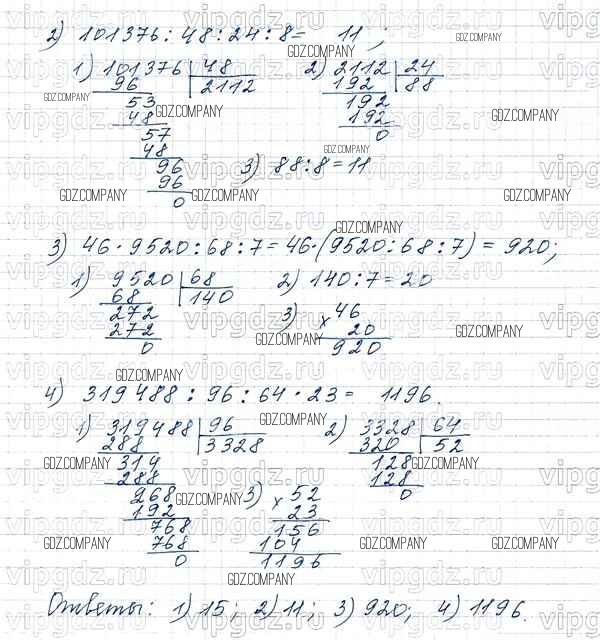 2) 101376 : 48 : 24 : 8 = 11;
1) 101376 | 48
96 2112
53
48
57
48
96
96
0
2) 2112 | 24
192 88
192
192
0
3) 88 : 8 = 11
3) 46 · 9520 : 68 : 7 = 46 · (9520 : 68 : 7) = 920;
1) 9520 | 68
68 140
272
272
0
2) 140 : 7 = 20
3) 46
× 20
920
4) 319488 : 96 : 64 · 23 = 1196.
1) 319488 | 96
288 3328
314
288
268
192
768
768
0
2) 3328 | 64
320 52
128
128
0
3) 52
× 23
156
104
1196
Ответы: 1) 15; 2) 11; 3) 920; 4) 1196.
vipgdz.ru
GDZ.COMPANY